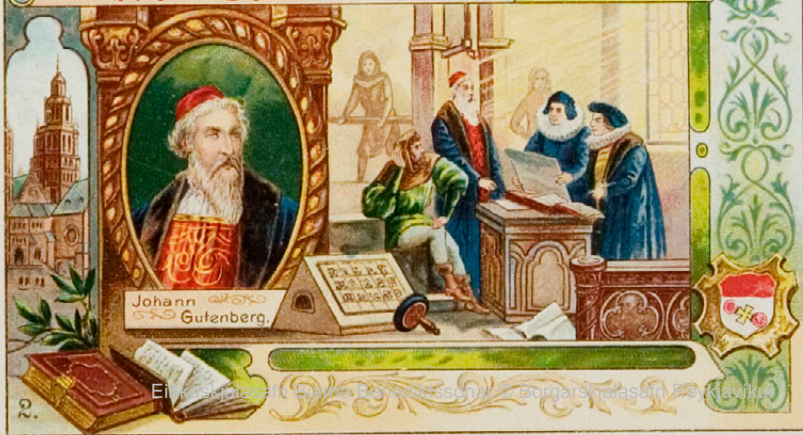 Johann
Gutenberg.
2.
Einkaskjalasafn Bjarna Benediktssonar © Borgarskjalasafn Reykjavíkur